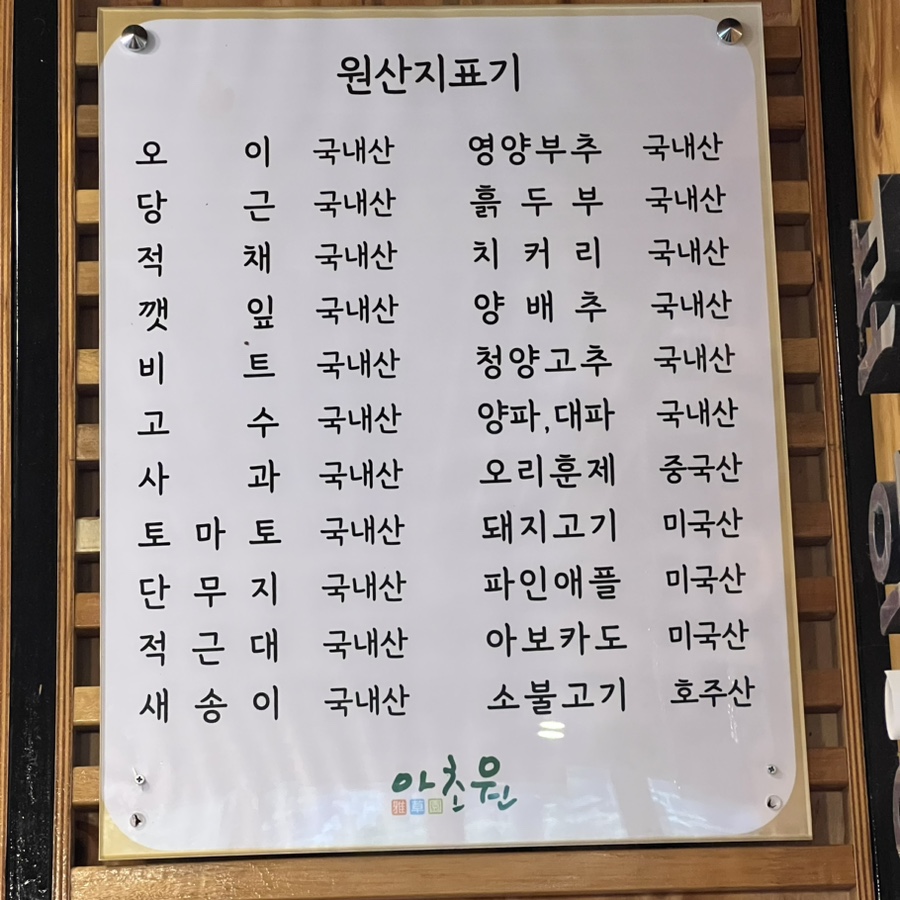 원산지표기
오 이 국내산 영양부추 국내산
당 근 국내산 흙 두 부 국내산
적 채 국내산 치 커 리 국내산
깻 잎 국내산 양 배 추 국내산
비 트 국내산 청양고추 국내산
고 수 국내산 양파,대파 국내산
사 과 국내산 오리훈제 중국산
토 마 토 국내산 돼지고기 미국산
단 무 지 국내산 파인애플 미국산
적 근 대 국내산 아보카도 미국산
새 송 이 국내산 소불고기 호주산
아초원
雅草園